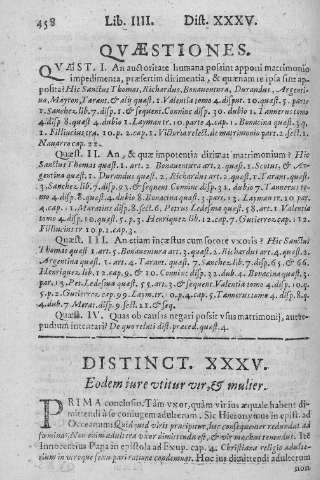 458 Lib. IIII. Dist. XXXV.
QVÆSTIONES.
QVÆIST. I. An auctoritate humana possint apponi matrimonio
impedimenta, præsertim dirimentia, & quænam re ipsa sint ap-
posita? Hic Sanctus Thomas, Richardus, Bonauentura, Durandus, Argenti-
na, Mayron, Tarant. & alij quæst. 1. Valentia tomo 4. disput. 10. quæst. 5. parte
1. Sanchez, lib. 7. disp. 1. & sequent. Coninc disp. 30. dubio 1. Tannerus tomo
4. disp. 8. quæst. 4. dubio 1. Layman tr. 10. parte 4. cap. 1. Bonacina quæst. 3.
1. Filliucius tra. 10. p. 2. cap. 1. Victoria relect. de matrimonio part. 2. sect. 1.
Nauarro cap. 22.
Quæst. II. An, & quæ impotentia dirimat matrimonium? Hic
Sanctus Thomas quæst. 1. art. 2. Bonauentura art. 2. quæst. 1. Scotus, & Ar-
gentina quæst. 1. Durandus quæst. 2. Richardus art. 2. quæst. 1. Tarant. quæst.
3. Sanchez lib. 7. disp. 92. & sequent. Coninc disp. 31. dubio 7. Tannerus to-
mo 4. disp. 8. quæst. 4. dubio 8. Bonacina quæst. 3. part. 13. Layman tr. 10. part.
4. cap. 11. Moratius disp. 18. sect. 6. Petrus Ledesma quæst. 58. art. 1. Valentia
tomo 4. disp. 10. quæst. 5. p. 3. Henriquez lib. 12. cap. 7. Gutierrez cap. 112.
Filliucius tr. 10. p. 1. cap. 3.
Quæst. III. An etiam incæstus cum sorore vxoris? Hic Sanctus
Thomas quæst. 1 art. 5. Bonauentura art. 3. quæst. 2. Richardus art. 3. quæst. 2.
Argentina quæst. 1. Tarant. art. 4. quæst. 7. Sanchez lib. 7. disp. 65. & 66.
Henriquez lib. 12. cap. 9. & 10. Coninc disp. 32. dub. 4. Bonacina quæst. 3.
par. 13. Pet. Ledesma quæst. 55. art. 5. & sequent Valentia tomo 4. disp. 10. q.
5. p. 2. Gutierrez. cap. 99. Laym. tr. 10. p. 4. cap. 5. Tannerus tomo 4. disp. 8. q.
4. dub. 7. Morat. disp. 9. sect. 21. & seq.
Quæst. IV. Quas ob causas negari possit vsus matrimonij, aut re-
pudium intentari? De quo relati dist. præced. quæst. 4.
DISTINCT. XXXV.
Eodem iure vtitur vir, & mulier.
PRIMA conclusio. Tam vxor, quàm virius æquale habent di-
mittendi à se coniugem adulterum. Sic Hieronymus in epist. ad
Oceanum Quidquid viris præcipitur, hoc consequenter redundat ad
fœminas. Non enim adultera vxor dimittenda est, & vir mœchus tenendus. Ité
Innocentius Papa in epistola ad Exup. cap. 4. Christiana religio adulte-
rium in vtroque sexu pari ratione condemnat. Hoc ius dimittendi adulterum
non